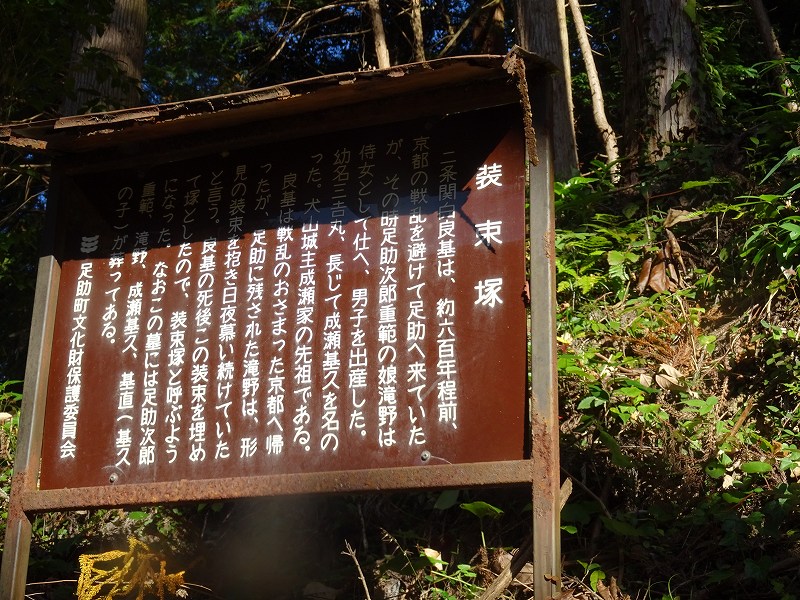 装束塚
二条関白良基は、約六百年程前、
京都の戦乱を避けて足助へ来ていた
が、その時足助次郎重範の娘滝野は
侍女として仕へ、男子を出産した。
幼名三吉丸、長じて成瀬基久を名の
った。犬山城主成瀬家の先祖である。
良基は戦乱のおさまった京都へ帰
ったが、足助に残された滝野は、形
見の装束を抱き日夜慕い続けていた
と言う。良基の死後この装束を埋め
て塚としたので、装束塚と呼ぶよう
になった。なおこの墓には足助次郎
重範、滝野、成瀬基久、基直(基久
の子)が葬ってある。
足助町文化財保護委員会